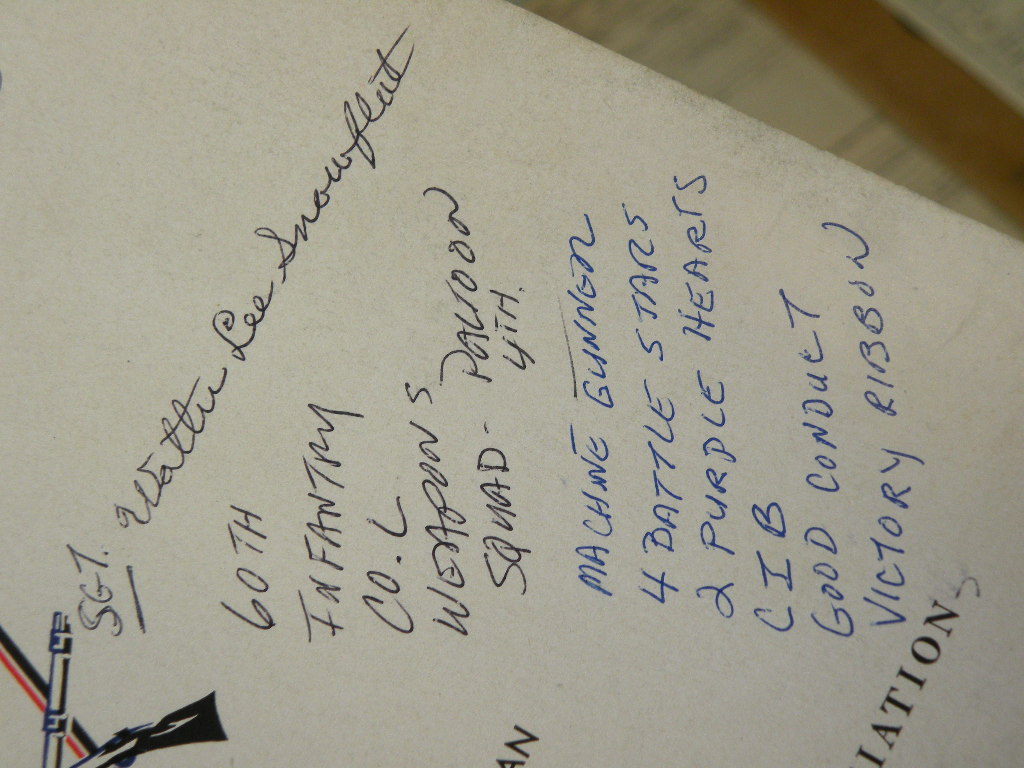 SGT. Walter Lee Snowflett
60TH
INFANTRY
CO. L
WEAPONS PALTOON
SQUAD - 4TH.
MACHNE GUNNER
4 BATTLE STARS
2 PURPLE HEARTS
C I B
GOOD CONDUCT
VICTORY RIBBON
AN
IATION